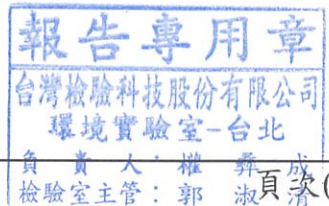 報告專用章
台灣檢驗科技股份有限公司
環境實驗室-台北
負責人：權彝成
檢驗室主管：郭淑清
頁次(